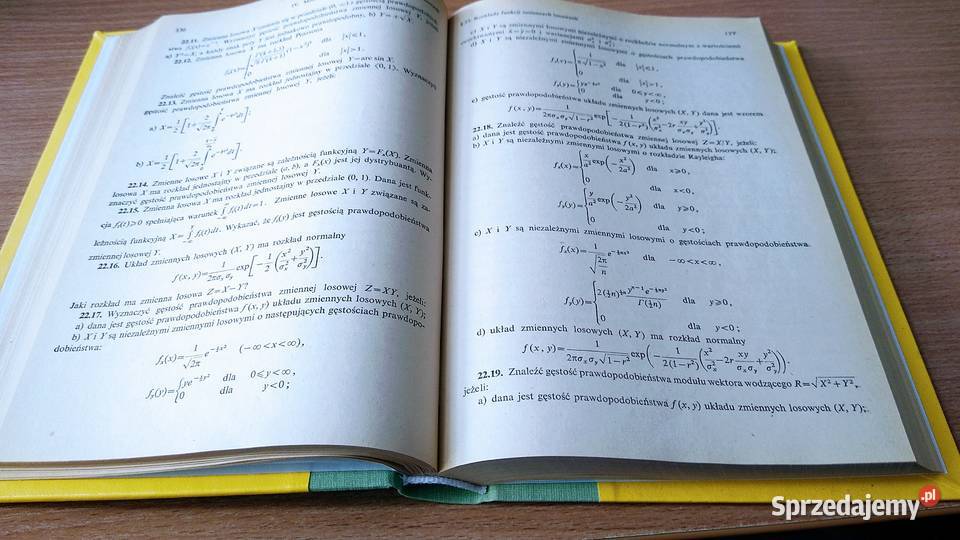 336
22.11. Zmienna losowa
22.12. Zmienna losowa X ma rozkład
dla |x|≤1,
0 dla |x|>1.
Znaleźć gęstość prawdopodobieństwa zmiennej losowej Y=arc sin X.
22.13. Zmienna losowa X ma rozkład jednostajny w przedziale (0, 1). Wyznaczyć
gęstość prawdopodobieństwa zmiennej losowej Y, jeżeli:
a) X=
b) X=
22.14. Zmienne losowe X i Y związane są zależnością funkcyjną Y=Fₓ(X). Zmienna
losowa X ma rozkład jednostajny w przedziale (a, b), a Fₓ(x) jest jej dystrybuantą. Wy-
znaczyć gęstość prawdopodobieństwa zmiennej losowej Y.
22.15. Zmienna losowa X ma rozkład jednostajny w przedziale (0, 1). Dana jest funk-
cja fᵧ(t)>0 spełniająca warunek ∫fᵧ(t)dt=1. Zmienne losowe X i Y związane są za-
leżnością funkcyjną X=∫fᵧ(t)dt. Wykazać, że fᵧ(y) jest gęstością prawdopodobieństwa
zmiennej losowej Y.
22.16. Układ zmiennych losowych (X, Y) ma rozkład normalny
f(x, y)=1/(2πσₓσᵧ) exp[−1/2(x²/σₓ²+y²/σᵧ²)].
Jaki rozkład ma zmienna losowa Z=X−Y?
22.17. Wyznaczyć gęstość prawdopodobieństwa zmiennej losowej Z=XY, jeżeli:
a) dana jest gęstość prawdopodobieństwa f(x, y) układu zmiennych losowych (X, Y);
b) X i Y są niezależnymi zmiennymi losowymi o następujących gęstościach prawdopo-
dobieństwa:
fₓ(x)=1/√2π e^(−½x²) (−∞<x<∞),
fᵧ(y)={ye^(−½y²) dla 0≤y<∞,
0 dla y<0;
c) X i Y są zmiennymi losowymi niezależnymi o rozkładzie normalnym z wartościami
d) X i Y są niezależnymi zmiennymi losowymi o gęstościach prawdopodobieństwa
fₓ(x)={1/(π√1−x²) dla |x|≤1,
0 dla |x|>1,
fᵧ(y)={ye^(−½y²) dla 0≤y<∞,
0 dla y<0;
e) gęstość prawdopodobieństwa układu zmiennych losowych (X, Y) dana jest wzorem
f(x, y)=1/(2πσₓσᵧ√1−r²) exp[−1/(2(1−r²))(x²/σₓ²−2r xy/(σₓσᵧ)+y²/σᵧ²)].
22.18. Znaleźć gęstość prawdopodobieństwa zmiennej losowej Z=X/Y, jeżeli:
a) dana jest gęstość prawdopodobieństwa f(x, y) układu zmiennych losowych (X, Y);
b) X i Y są niezależnymi zmiennymi losowymi o rozkładzie Rayleigha:
fₓ(x)={x/a² exp(−x²/2a²) dla x≥0,
0 dla x<0,
fᵧ(y)={y/a² exp(−y²/2a²) dla y≥0,
0 dla y<0;
c) X i Y są niezależnymi zmiennymi losowymi o gęstościach prawdopodobieństwa
fₓ(x)=1/√(2π/n) e^(−½nx²) dla −∞<x<∞,
fᵧ(y)={2(½n)^(½n) y^(n−1)e^(−½ny²)/Γ(½n) dla y≥0,
0 dla y<0;
d) układ zmiennych losowych (X, Y) ma rozkład normalny
f(x, y)=1/(2πσₓσᵧ√1−r²) exp(−1/(2(1−r²))(x²/σₓ²−2r xy/(σₓσᵧ)+y²/σᵧ²)).
22.19. Znaleźć gęstość prawdopodobieństwa modułu wektora wodzącego R=√X²+Y²,
jeżeli:
a) dana jest gęstość prawdopodobieństwa f(x, y) układu zmiennych losowych (X, Y);
Sprzedajemy.pl